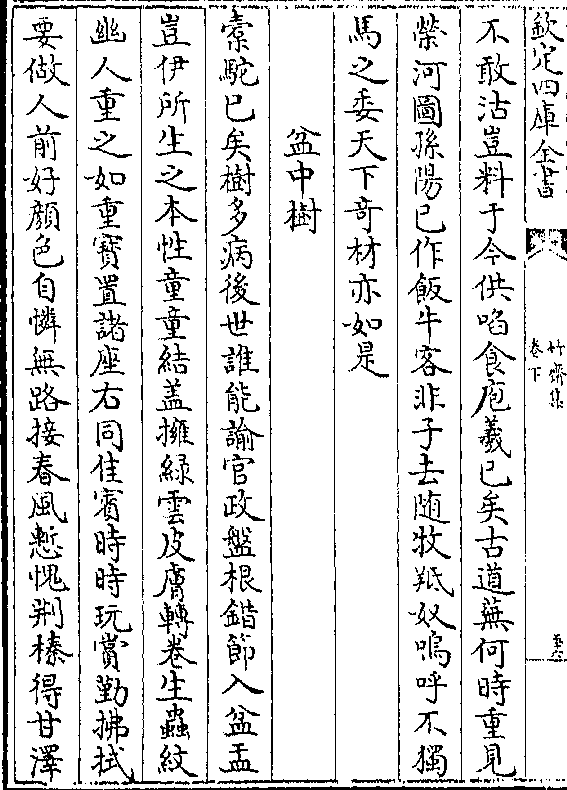 欽定四庫全書
竹齋集
卷下
不敢沽豈料于今供啗食庖羲已矣古道蕪何時重見
榮河圖孫陽已作飯牛客非子去随牧羝奴嗚呼不獨
馬之委天下竒材亦如是
盆中樹
橐駝已矣樹多病後世誰能諭官政盤根錯節入盆盂
豈伊所生之本性童童結盖擁綠雲皮膚轉卷生蟲紋
幽人重之如重寳置諸座右同佳賓時時玩賞勤拂拭
要做人前好顔色自憐無路接春風慙愧荆榛得甘澤